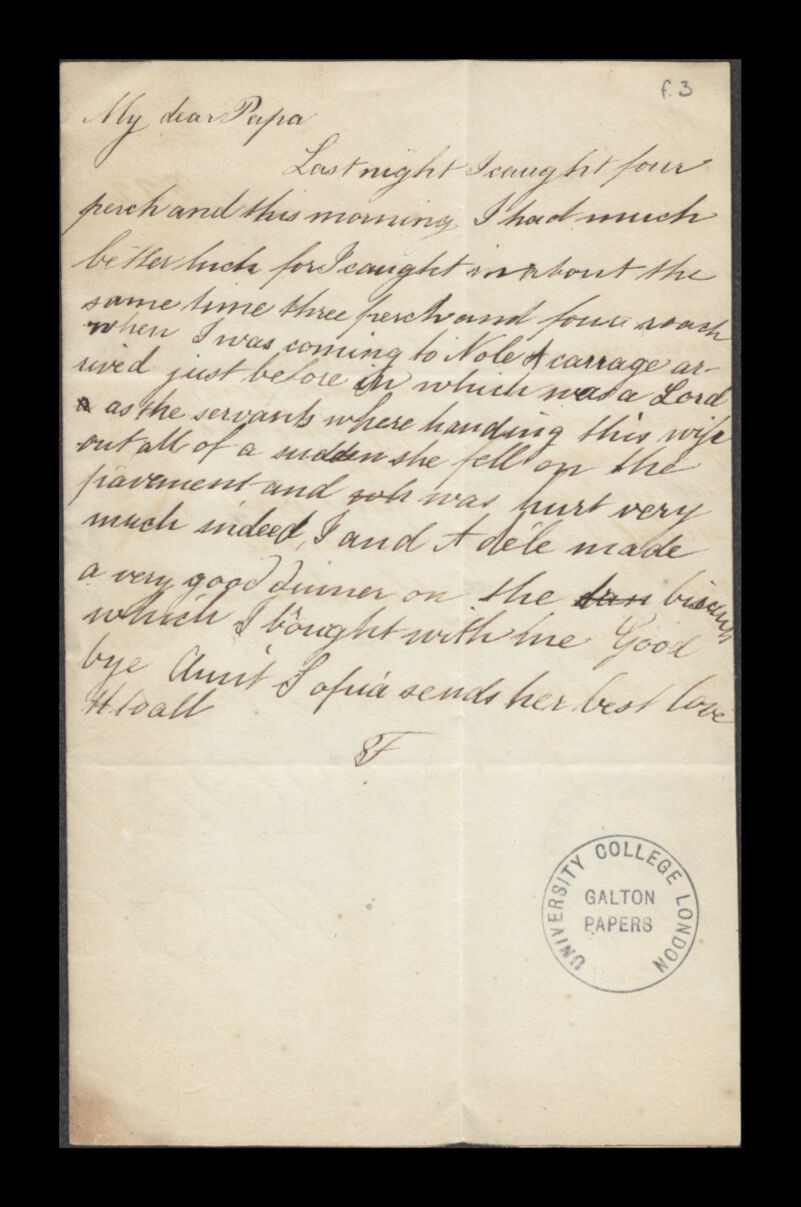 f. 3
My dear Papa
Last night I caught four
perch and this morning I had much
better luck for I caught in about the
same time three perch and four roach
when I was coming to Nole A carrage ar-
rived just before in which was a Lord
as the servants where handing this wife
out all of a sudden she fell on the
pavement and was hurt very
much indeed, I and Adèle made
a very good dinner on the biscuits
which I bought with me Good
bye Aunt Sofia sends her best love
to all
F
UNIVERSITY COLLEGE LONDON
GALTON
PAPERS